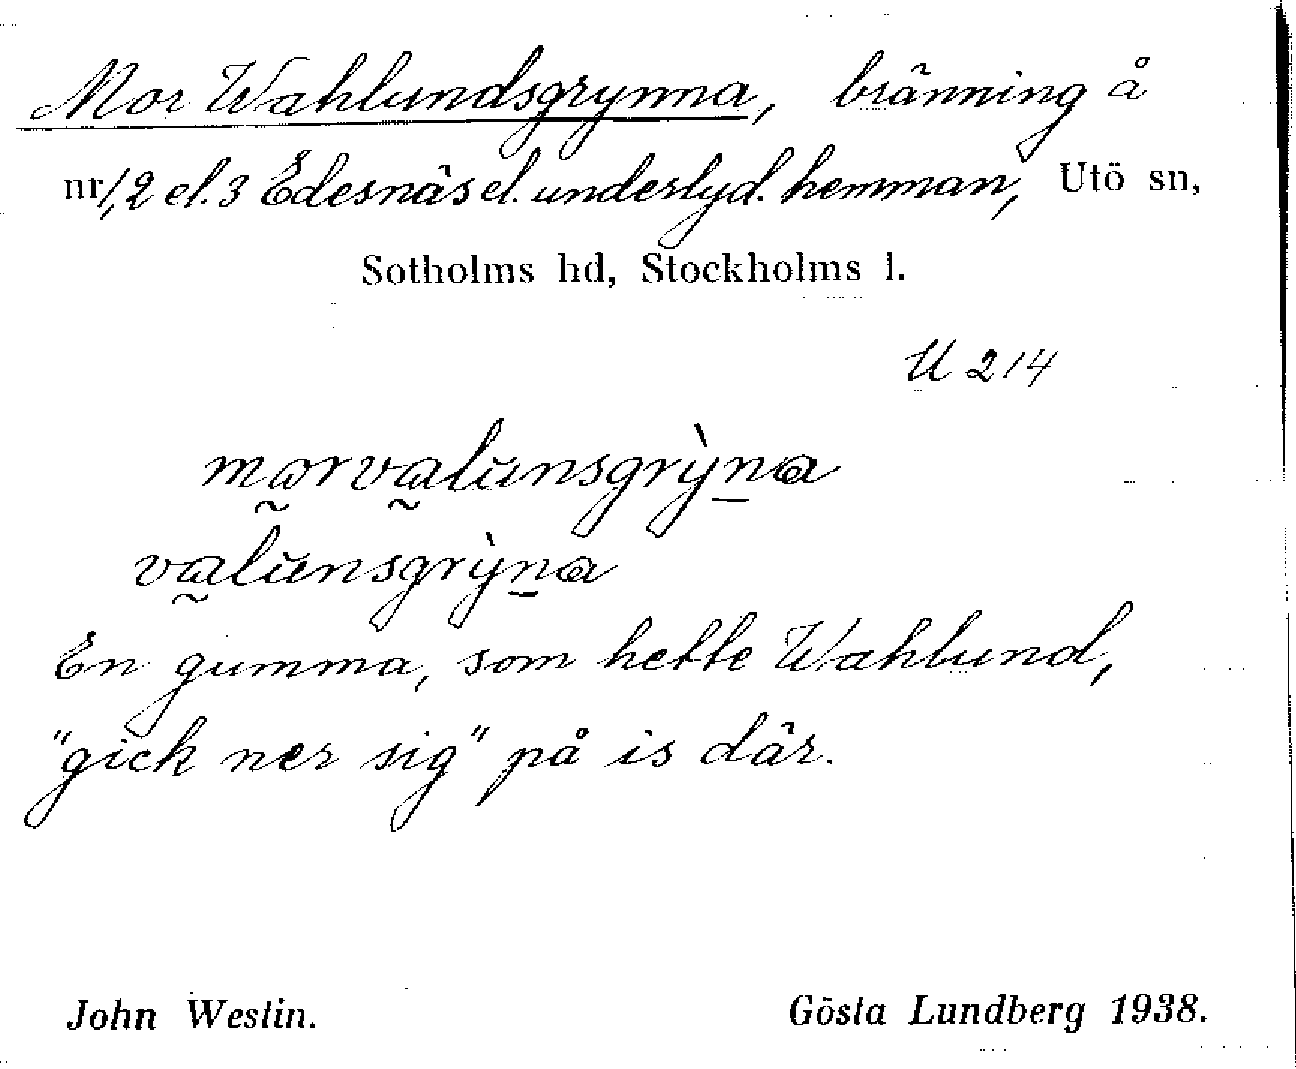 Mor Wahlundsgrynna, bränning å
nr 1, 2 el. 3 Edesnäs el. underlyd. hemman, Utö sn,
Sotholms hd, Stockholms l.
U 214
morvalŭnsgrỳna
valŭnsgrỳna
En gumma, som hette Wahlund,
"gick ner sig" på is där.
John Westin. Gösta Lundberg 1938.